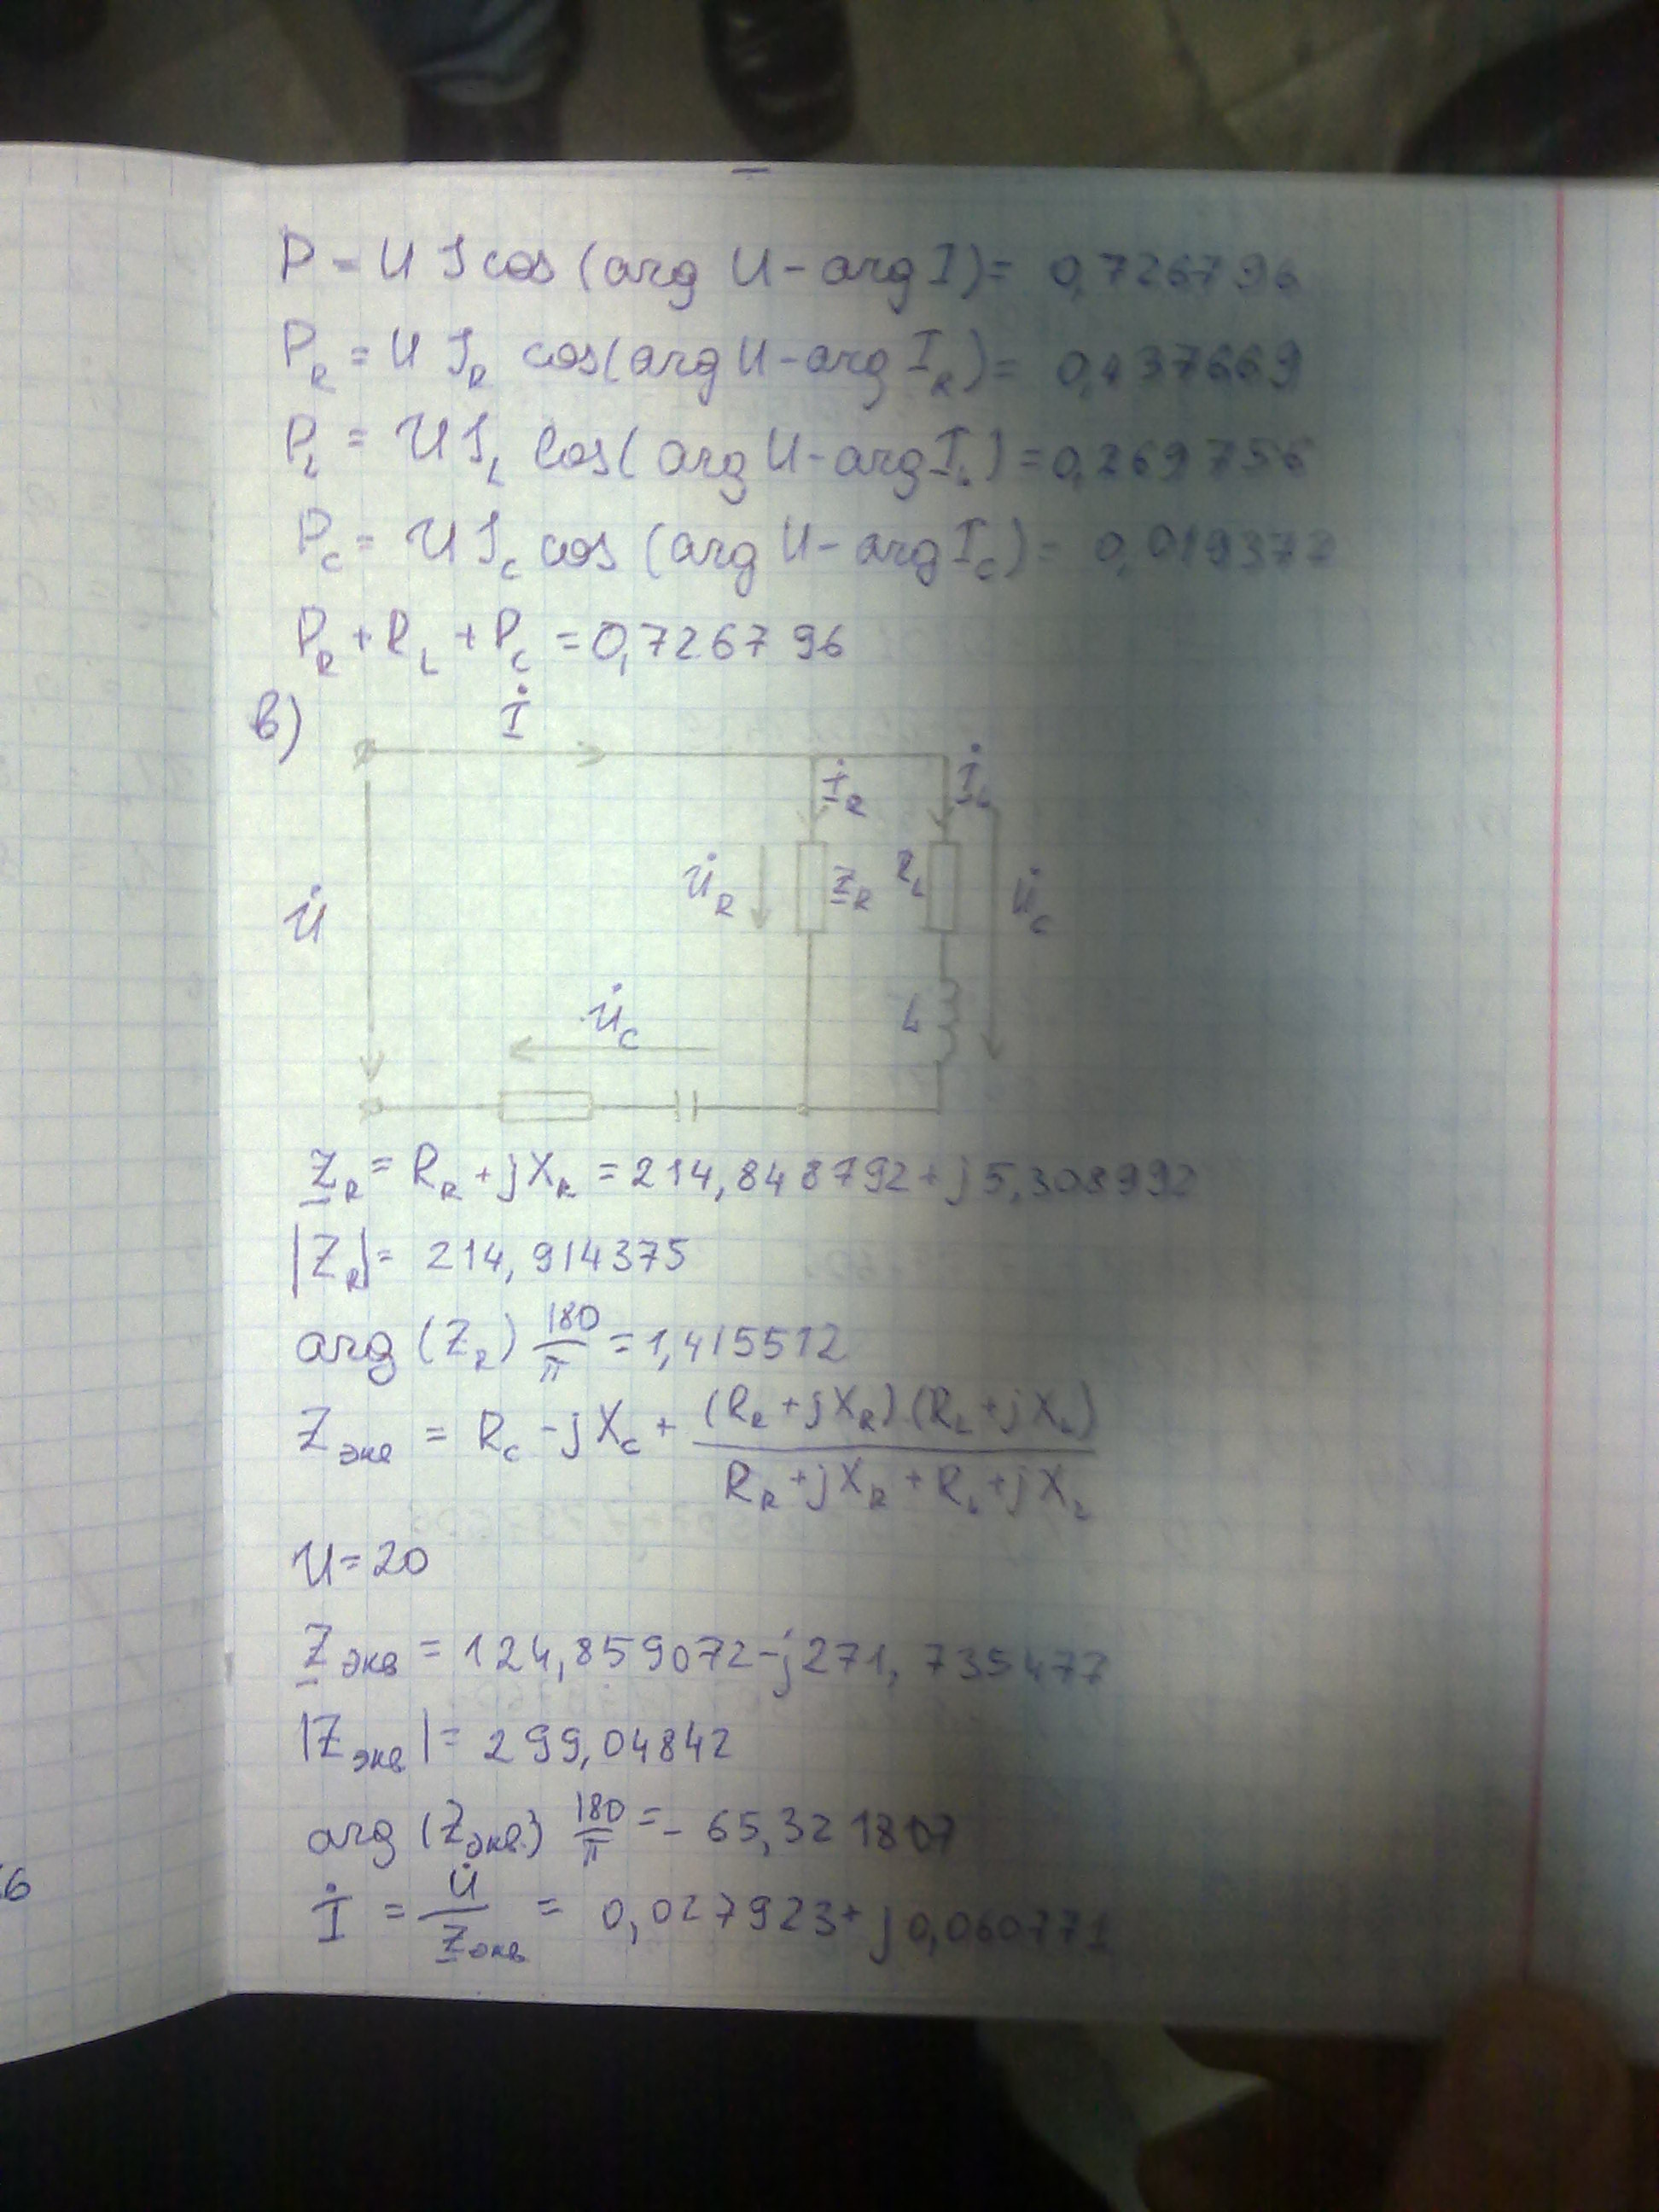 P = U I cos (arg U - arg I) = 0,726796
P_R = U I_R cos(arg U - arg I_R) = 0,437669
P_L = U I_L cos(arg U - arg I_L) = 0,269756
P_C = U I_C cos (arg U - arg I_C) = 0,019372
P_R + R_L + P_C = 0,726796
в) İ
İ_R İ_L
U̇ U̇_R Z_R R_L U̇_C
U̇_C L
Z_R = R_R + jX_R = 214,848792 + j5,308992
|Z_R| = 214,914375
arg (Z_R) 180/π = 1,415512
Z_экв = R_C - jX_C + (R_R + jX_R)(R_L + jX_L) / R_R + jX_R + R_L + jX_L
U = 20
Z_экв = 124,859072 - j271,735477
|Z_экв| = 299,04842
arg (Z_экв) 180/π = - 65,321807
İ = U̇/Z_экв = 0,027923 + j0,060771
6